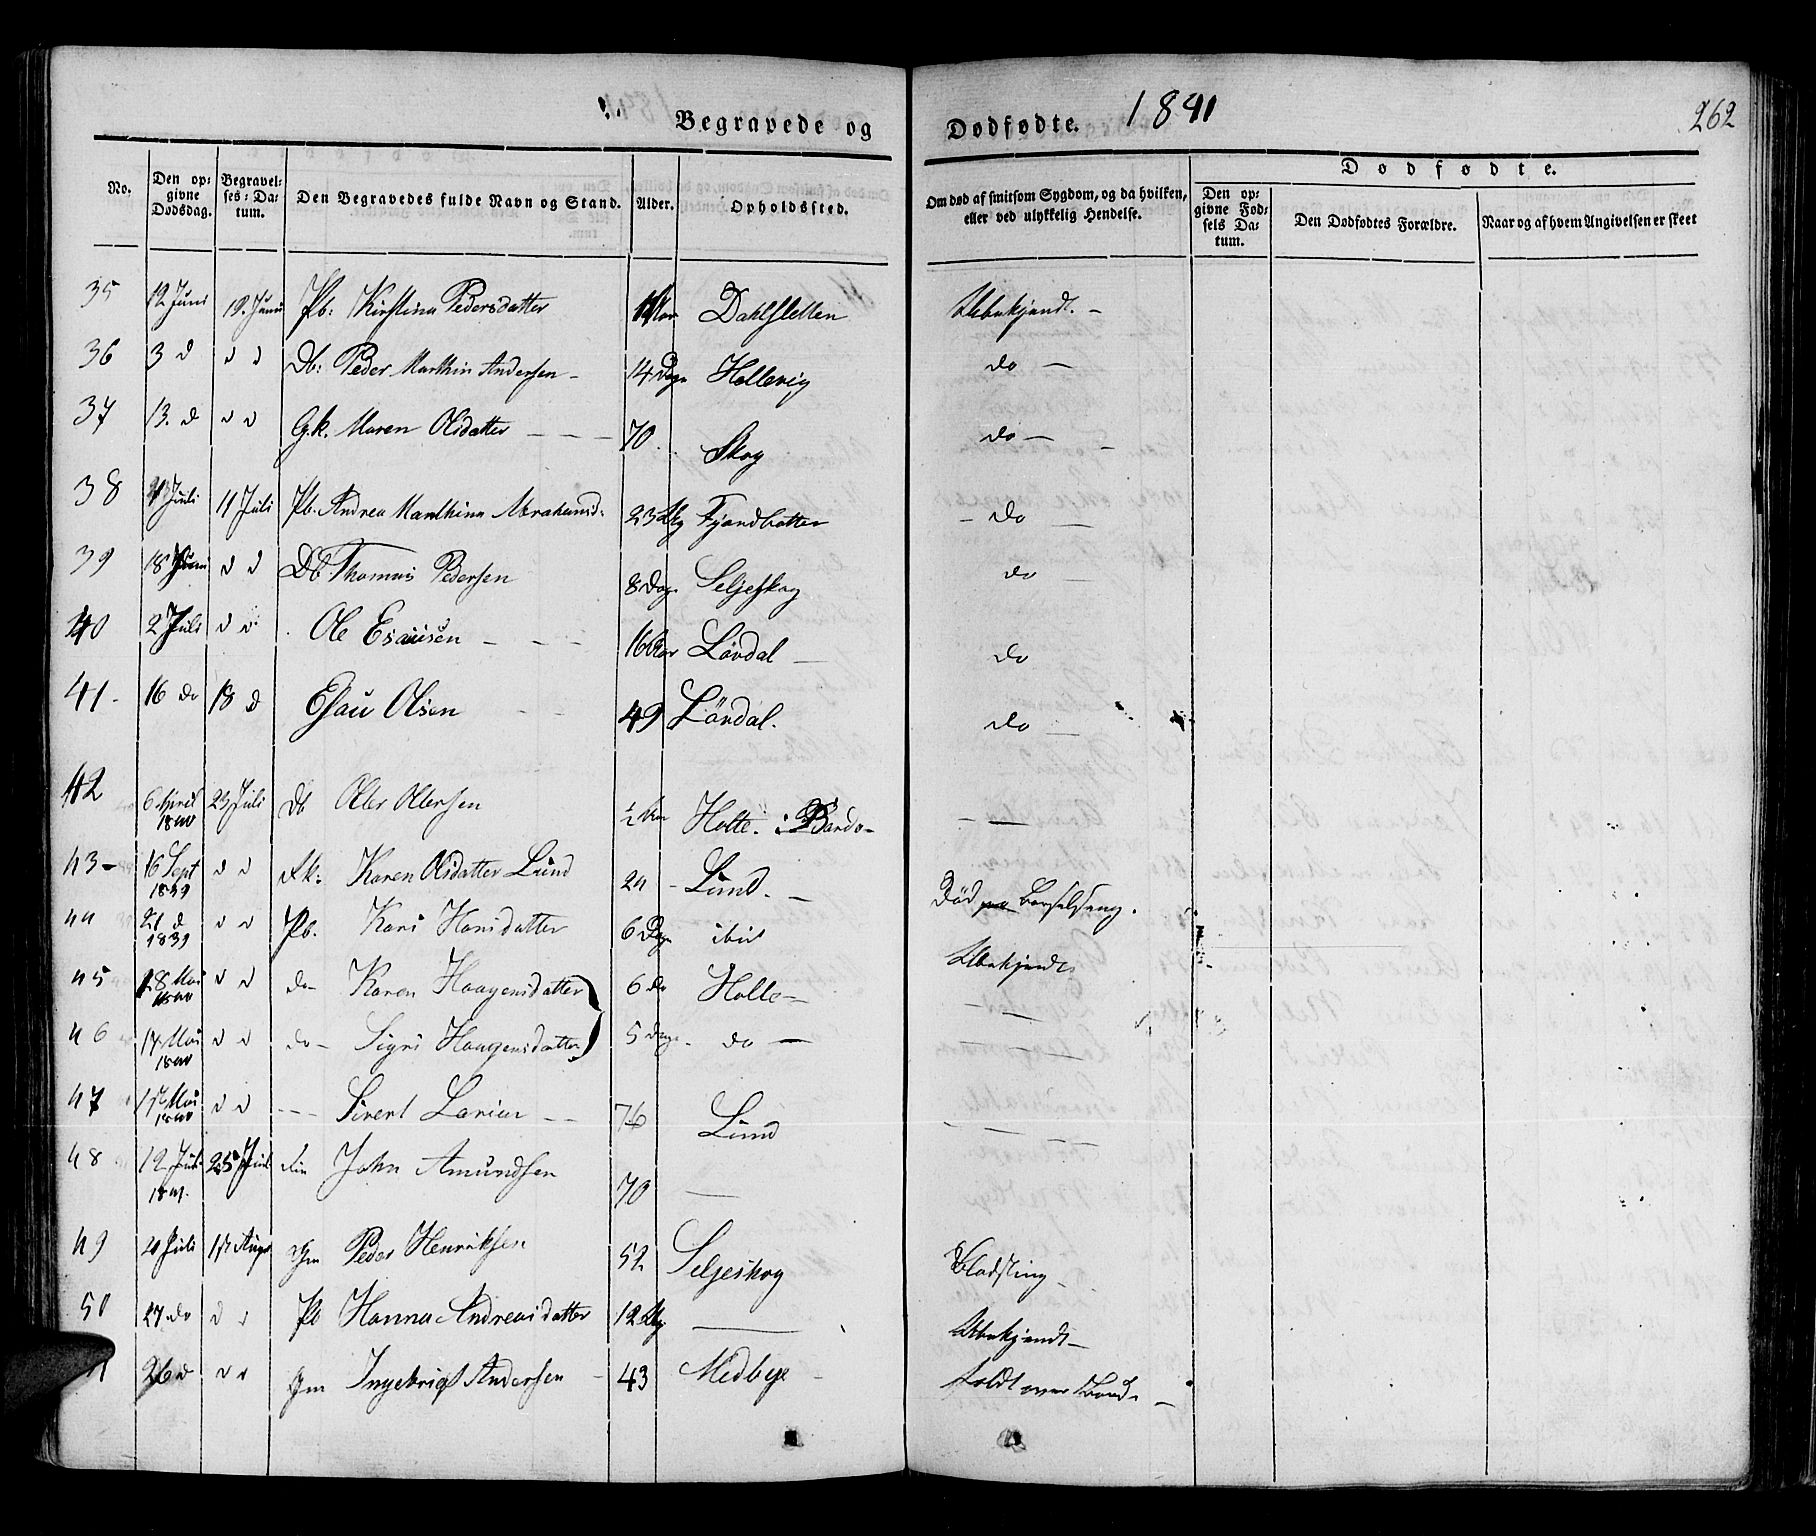 Begravede og Dødfødte. 1841 262
No. Den opgivne Dødsdag. Begravelses-Datum. Den Begravedes fulde Navn og Stand. Alder. Opholdssted. Om død af smitsom Sygdom, og da hvilken, eller ved ulykkelig Hendelse. Dødfødte. Den opgivne Fødsels Datum. Den Dødfødtes Forældre. Naar og af hvem Angivelsen er skeet
35 12 Juni 19. Juni Pb: Kirstina Pedersdatter Dahlsletten Ubekjendt. -
36 3 d d d Db: Peder Marthin Andersen - 14 Dage Hollevig do -
37 13. d d d G.k. Maren Olsdatter - - - 70. Skog do -
38 Juli 11 Juli Pb. Andrea Marthina Abrahamsd: 23 Fjordbotten - do -
39 18 Juni d d Db Thomas Pedersen 8 Dage Seljeskog do -
40 2 Juli d d. Ole Esausen - - - 16 Løvdal - do
41. 16 do 18 d Esau Olsen - - 49 Løvdal. do -
42 6 April 1840 23 Juli Db Oler Olersen ½ Aar Holte. i Bardo - - -
43 - 16 Sept 1839 d d Karen Olsdatter Lund 24 - Lund. - Død Barselseng.
44 21 d 1839 d d Pb. Kari Hansdatter 6 Dage ibid Ubekjendt
45 18 Mai 1840 d d do - Karen Haagensdatter 6 do Holte - - -
46 17 Mai 1840 d d do - Sigri Haagensdatter 5 Dage. do - - - -
47 17 Mai 1840 d d - - - Sivert Larsen - - 76 Lund - - - -
48 12 Juli 1841. 25 Juli John Amundsen 70 -
49 20 Juli 17 Aug. Gm Peder Henriksen 52 Seljeskog Blodsting -
50 27 do d d Pb Hanna Andreasdatter 12 - Ubekjendt -
26 d d d Gm Ingebrigt Andersen - 43 Medbye - Faldt over Bord -